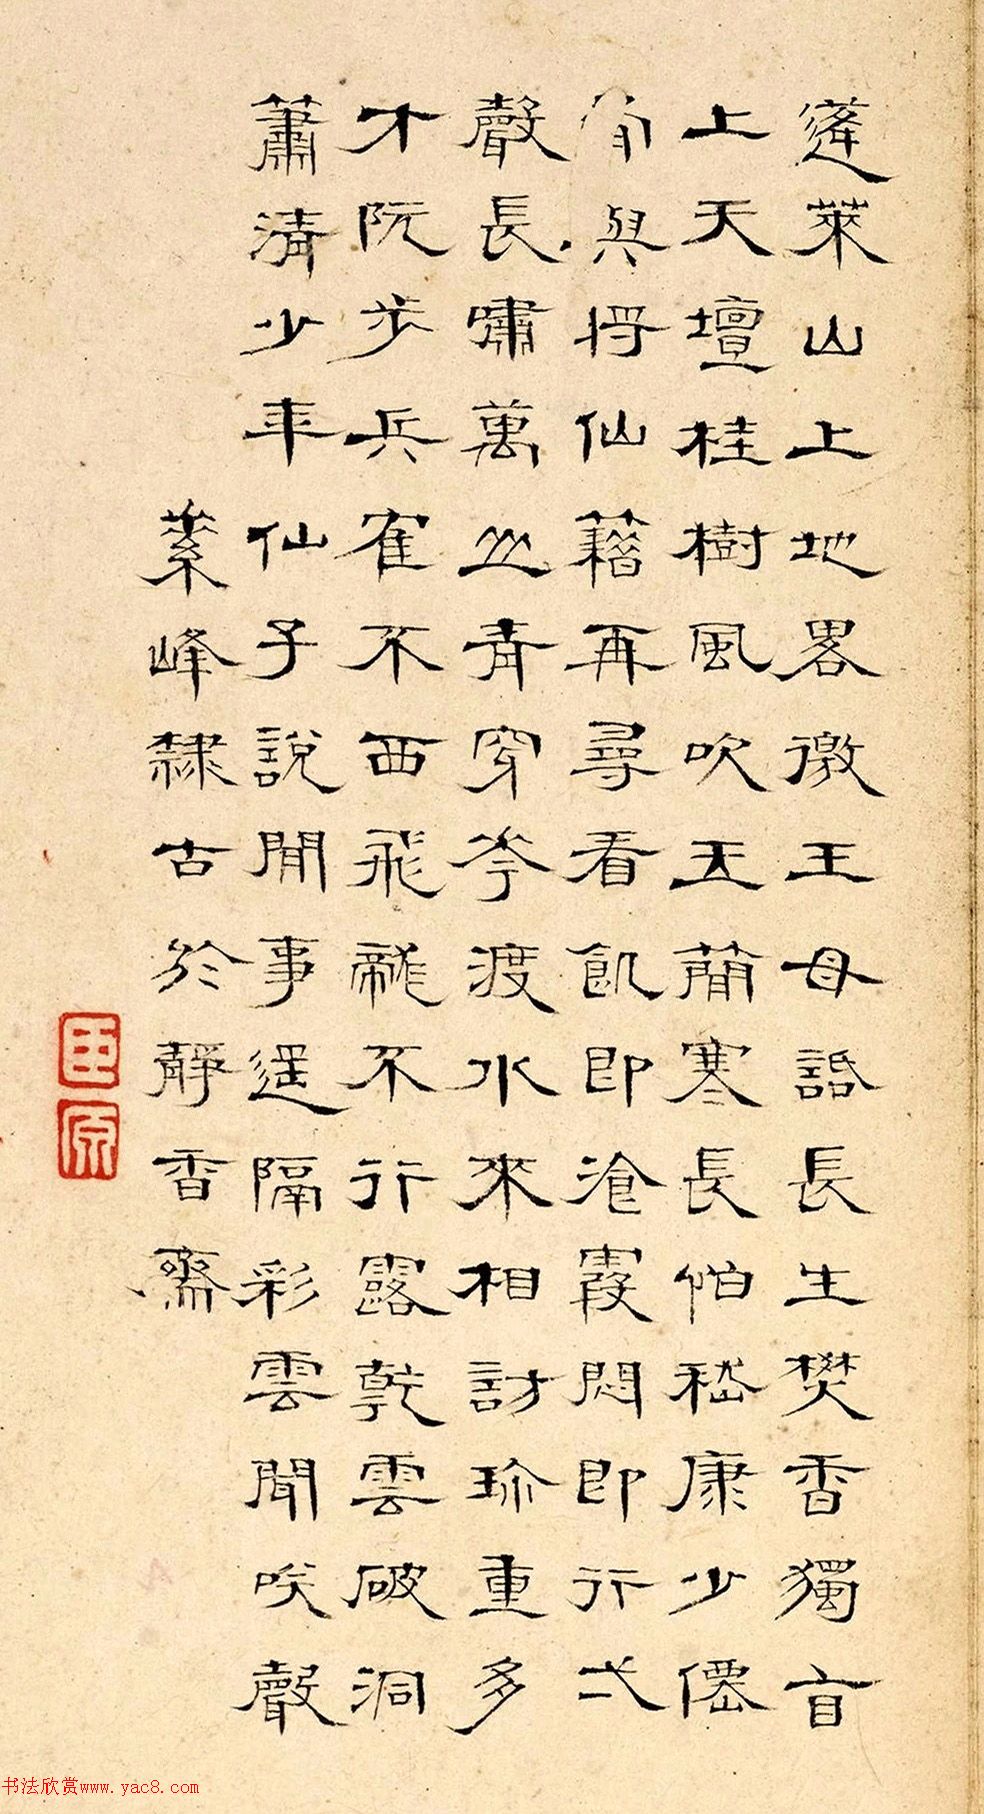 蓬萊山上地畧徵王母話長生焚香獨自
上天壇桂樹風吹玉簡寒長怕嵇康少僊
骨與將仙籍再尋看飢即湌霞悶即行弌
聲長嘯萬山青穿花渡水來相訪珍重多
才阮步兵隺不西飛龍不行露乾雲破洞
簫清少年仙子說閒事遥隔彩雲聞咲聲
素峰隸古於靜香齋
臣
原
书法欣赏www.yac8.com